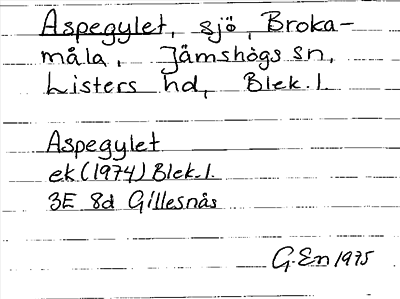 Aspegylet, sjö, Broka-
måla, Jämshögs sn,
Listers hd, Blek.l.
Aspegylet
ek(1974)Blek.l.
3E 8d Gillesnäs
G.En 1975